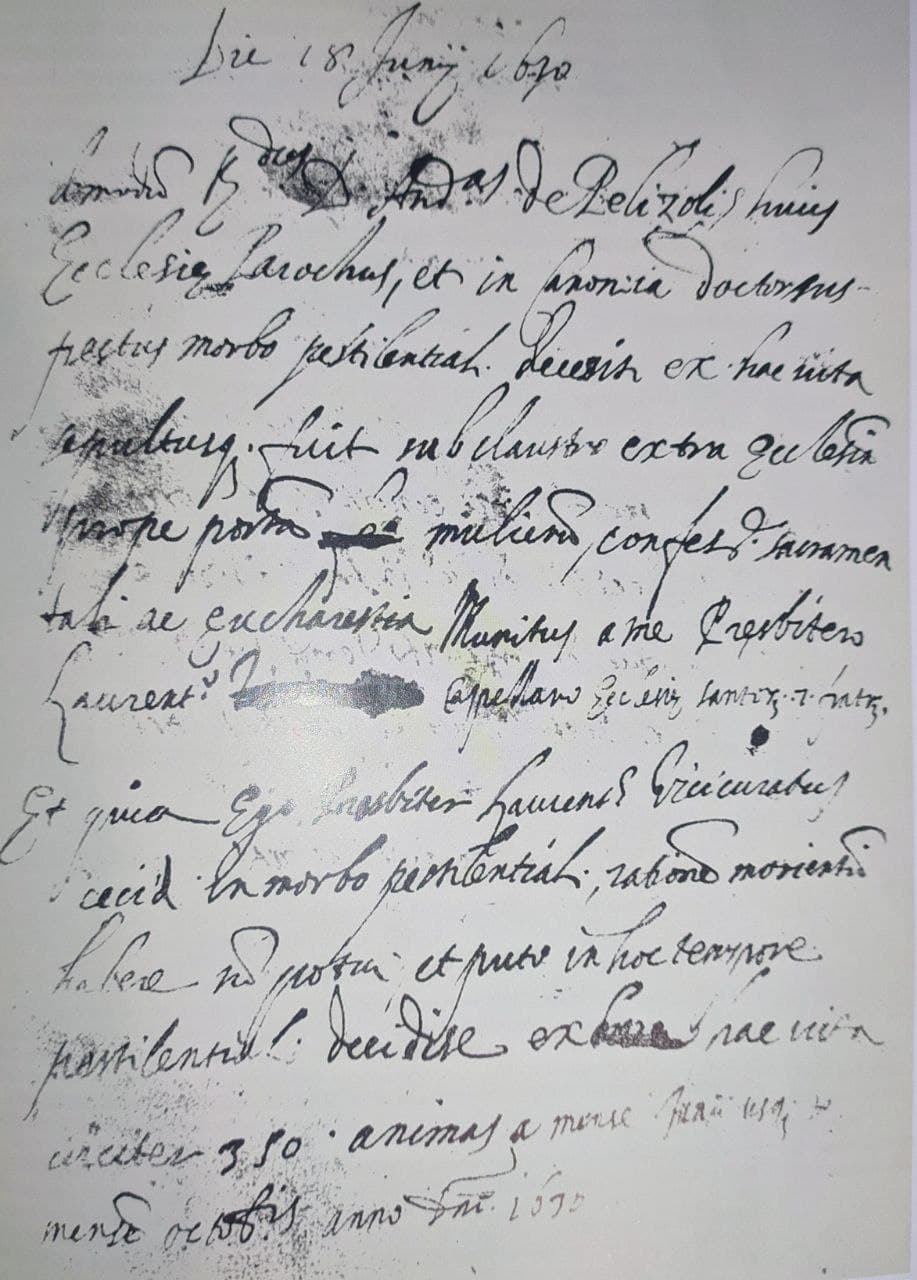 Die 18 Junij 1630
Admodũ R.dus D. And.as de Pelizolis huius
Ecclesię Parochus, et in Canonica doctor sus-
pectus morbo pestilentiali. decesit ex hac uita
sepultusq. fuit sub claustro extra Ecclesiã
prope portã mulierũ, confes.e sacramen
tali ac eucharestia Munitus a me Presbitero
Laurent.o Capellano Ecclesię
Et quia Ego Presbiter Laurent.s Vicicuratus
cecid in morbo pestilentiali, rationẽ morientiũ
habere nõ potui et puto in hoc tempore
pestilentiali decidise ex hac uita
circiter 350 animas a mense Junii usq;
mensẽ octobris anno Dni. 1630